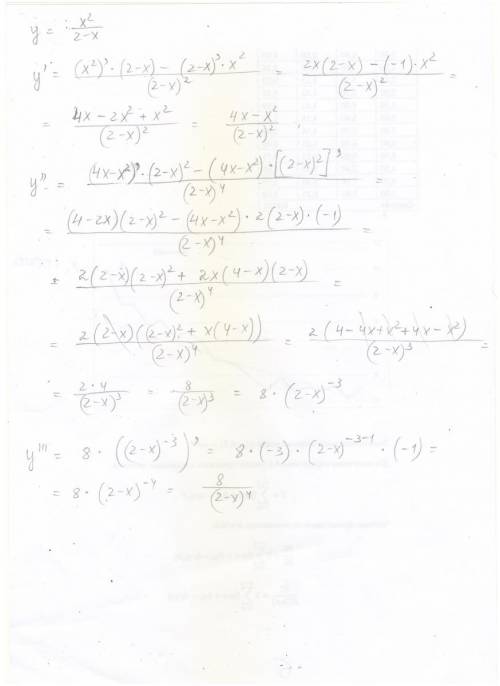 y = x²/(2-x)
y' = ((x²)'·(2-x) - (2-x)'·x²)/(2-x)² = (2x(2-x) - (-1)·x²)/(2-x)² =
= (4x - 2x² + x²)/(2-x)² = (4x-x²)/(2-x)².
y'' = ((4x-x²)'·(2-x)² - (4x-x²)·[(2-x)²]')/(2-x)⁴ =
= ((4-2x)(2-x)² - (4x-x²)·2(2-x)·(-1))/(2-x)⁴ =
= (2(2-x)(2-x)² + 2x(4-x)(2-x))/(2-x)⁴ =
= 2(2-x)((2-x)² + x(4-x))/(2-x)⁴ = 2(4-4x+x²+4x-x²)/(2-x)³ =
= 2·4/(2-x)³ = 8/(2-x)³ = 8·(2-x)⁻³
y''' = 8·((2-x)⁻³)' = 8·(-3)·(2-x)⁻³⁻¹·(-1) =
= 8·(2-x)⁻⁴ = 8/(2-x)⁴